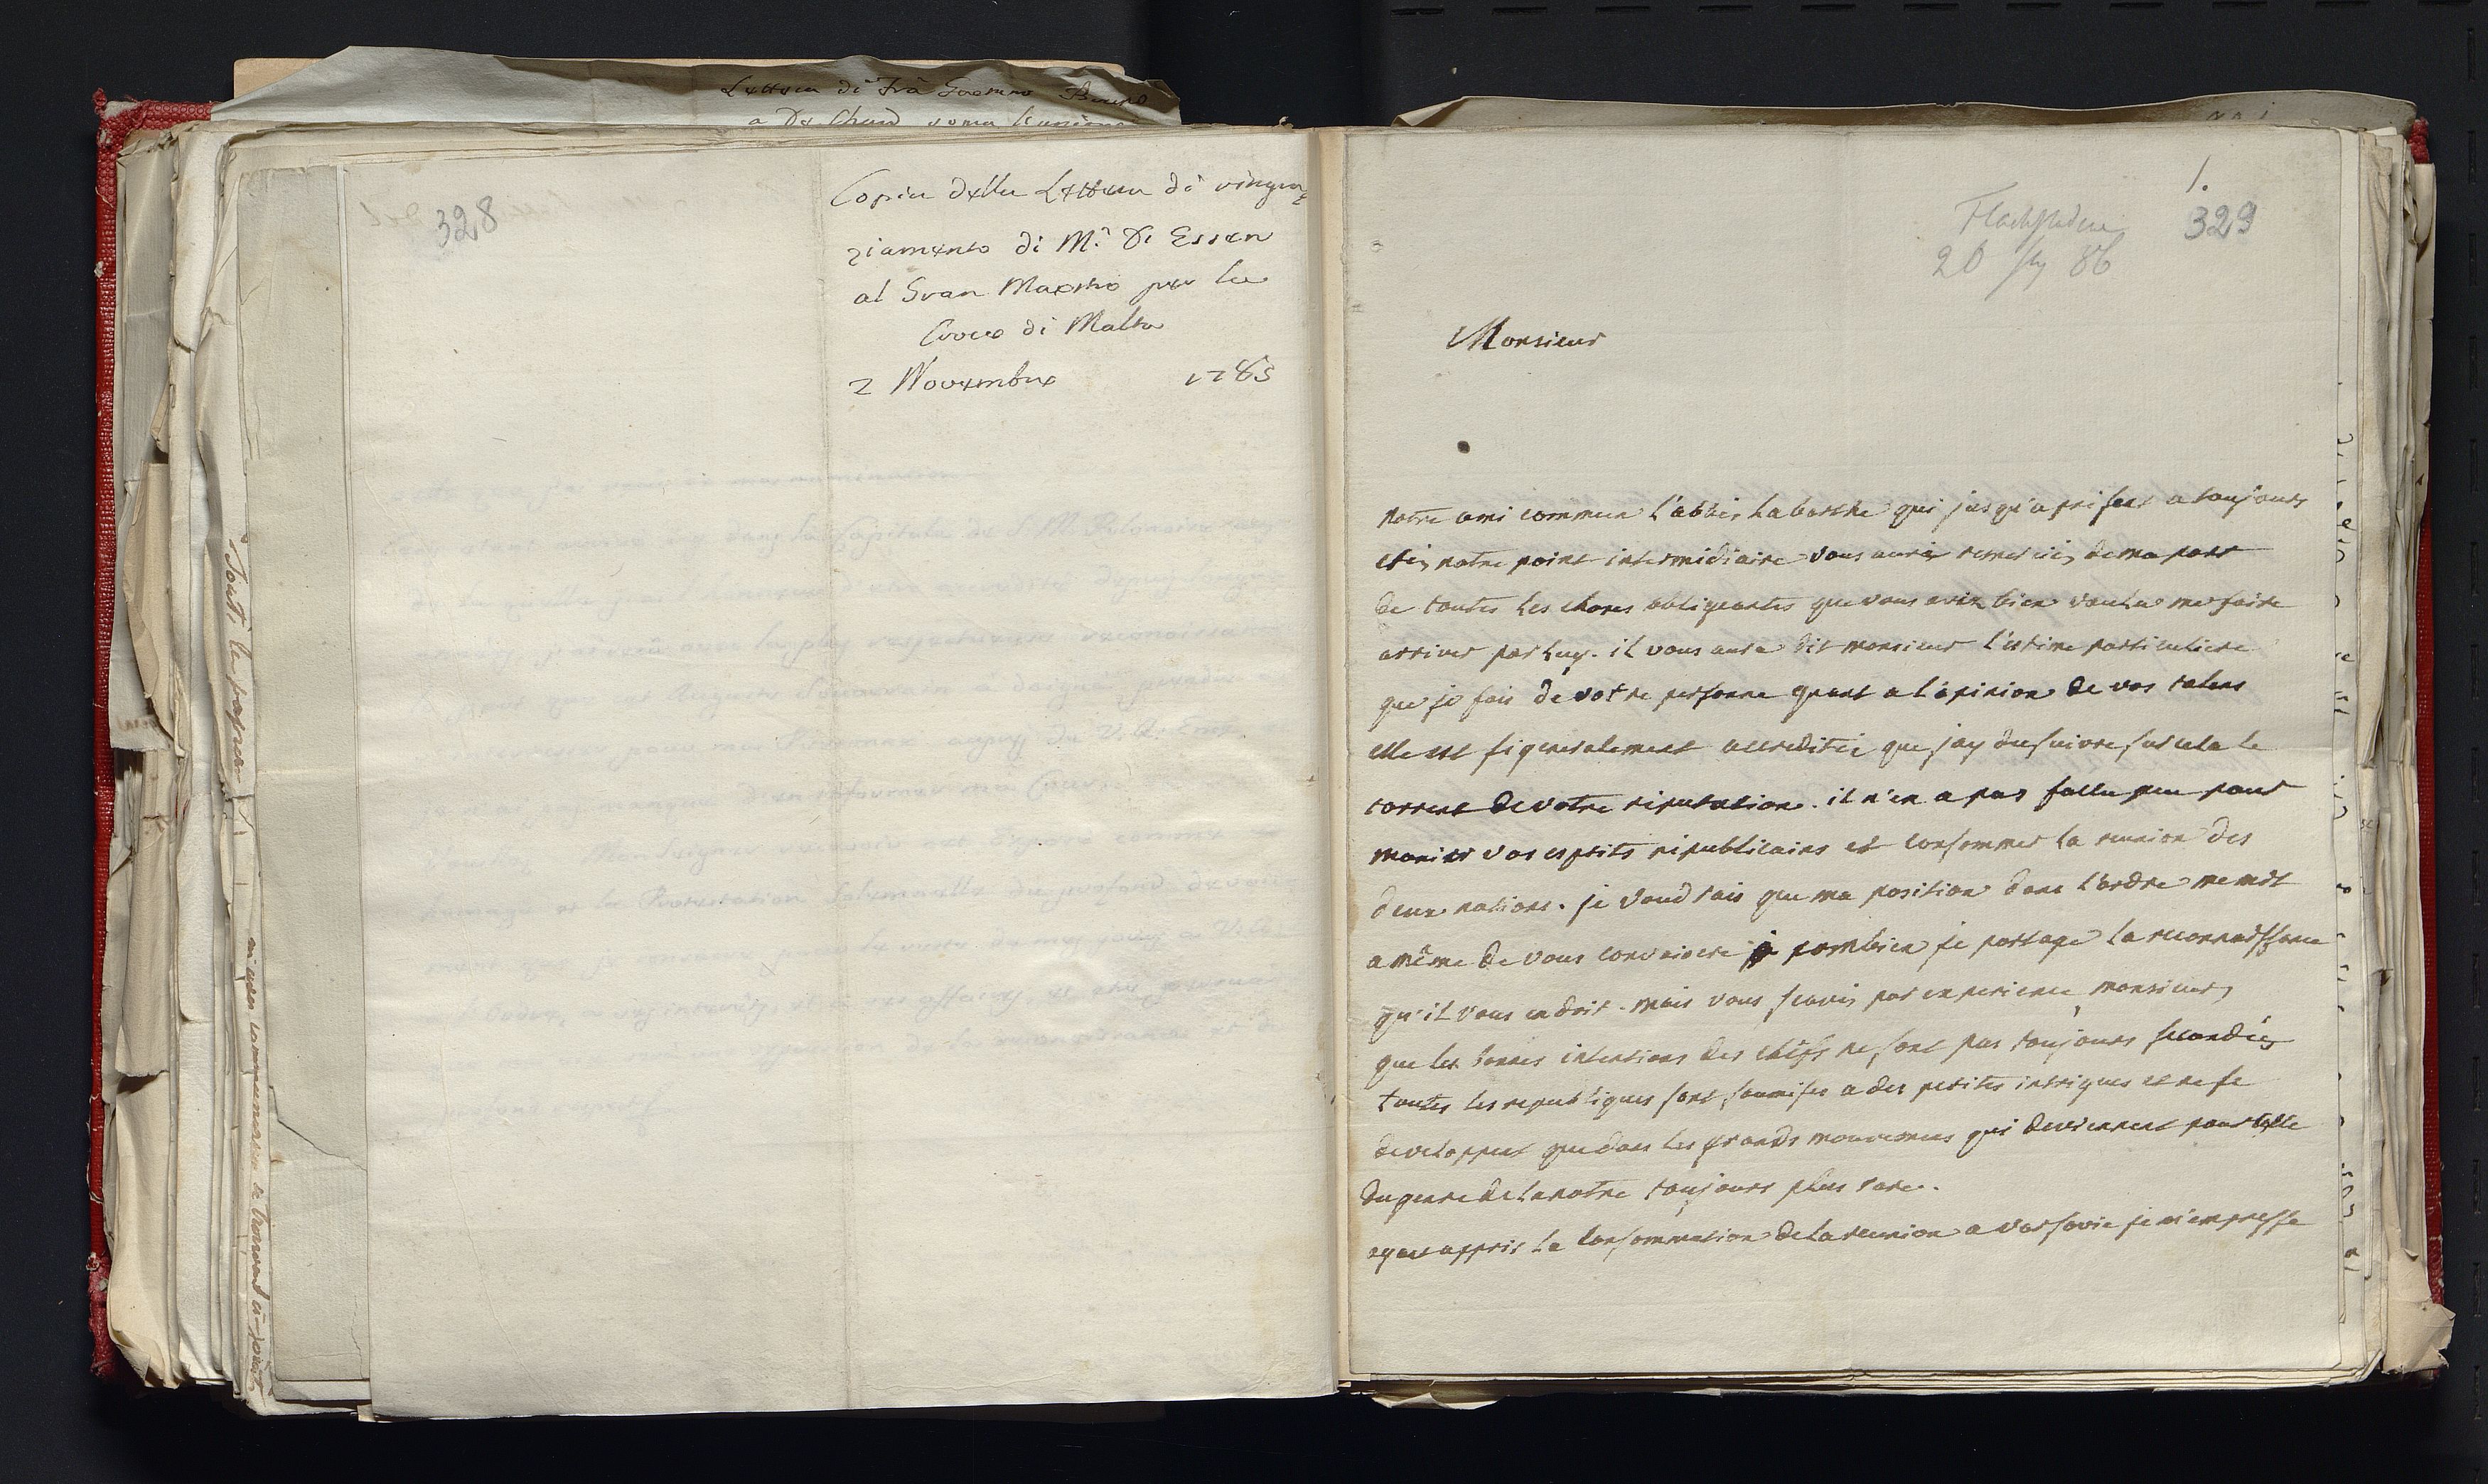 Lettera di Frà Gaetano
a De Chard
328
Copia della Lettera di ringra=
ziamento di M.r De Essen
al Gran Maestro per la
Croce di Malta
2 Novembre 1785
Toute le papier
se trouvent ci-joint
1.
329
Flachslanden
26 86
Monsieur
notre ami commun l'abbéz La barthe qui jusqu'a present a toujours
etéz notre point intermidiaire vous auréz remerciéz de ma part
de toutes les choses obligeantes que vous avéz bien voulu me faire
arriver par luy. il vous aura dit monsieur l'estime particuliere
que je fais de votre personne quant a l'opinion de vos talens
elle est si generalement accreditéé que j'ay du suivre sur cela le
torrent de votre réputation. il n'en a pas fallu peu pour
manier vos esprits républicains et consommer la reunion des
deux nations. je voudrais que ma position dans l'ordre me mit
a même de vous convaincre combien je partage la reconnaissance
qu'il vous en doit. mais vous scavéz par experience monsieur,
que les bonnes intentions des chefs ne sont pas toujours secondéés
toutes les republiques sont soumises a des petites intrigues et ne se
developpent que dans les grands mouvemens qui deviennent pour celle
du genre de la notre toujours plus rare.
ayant appris la consommation de la reunion a varsovie je m'empresse